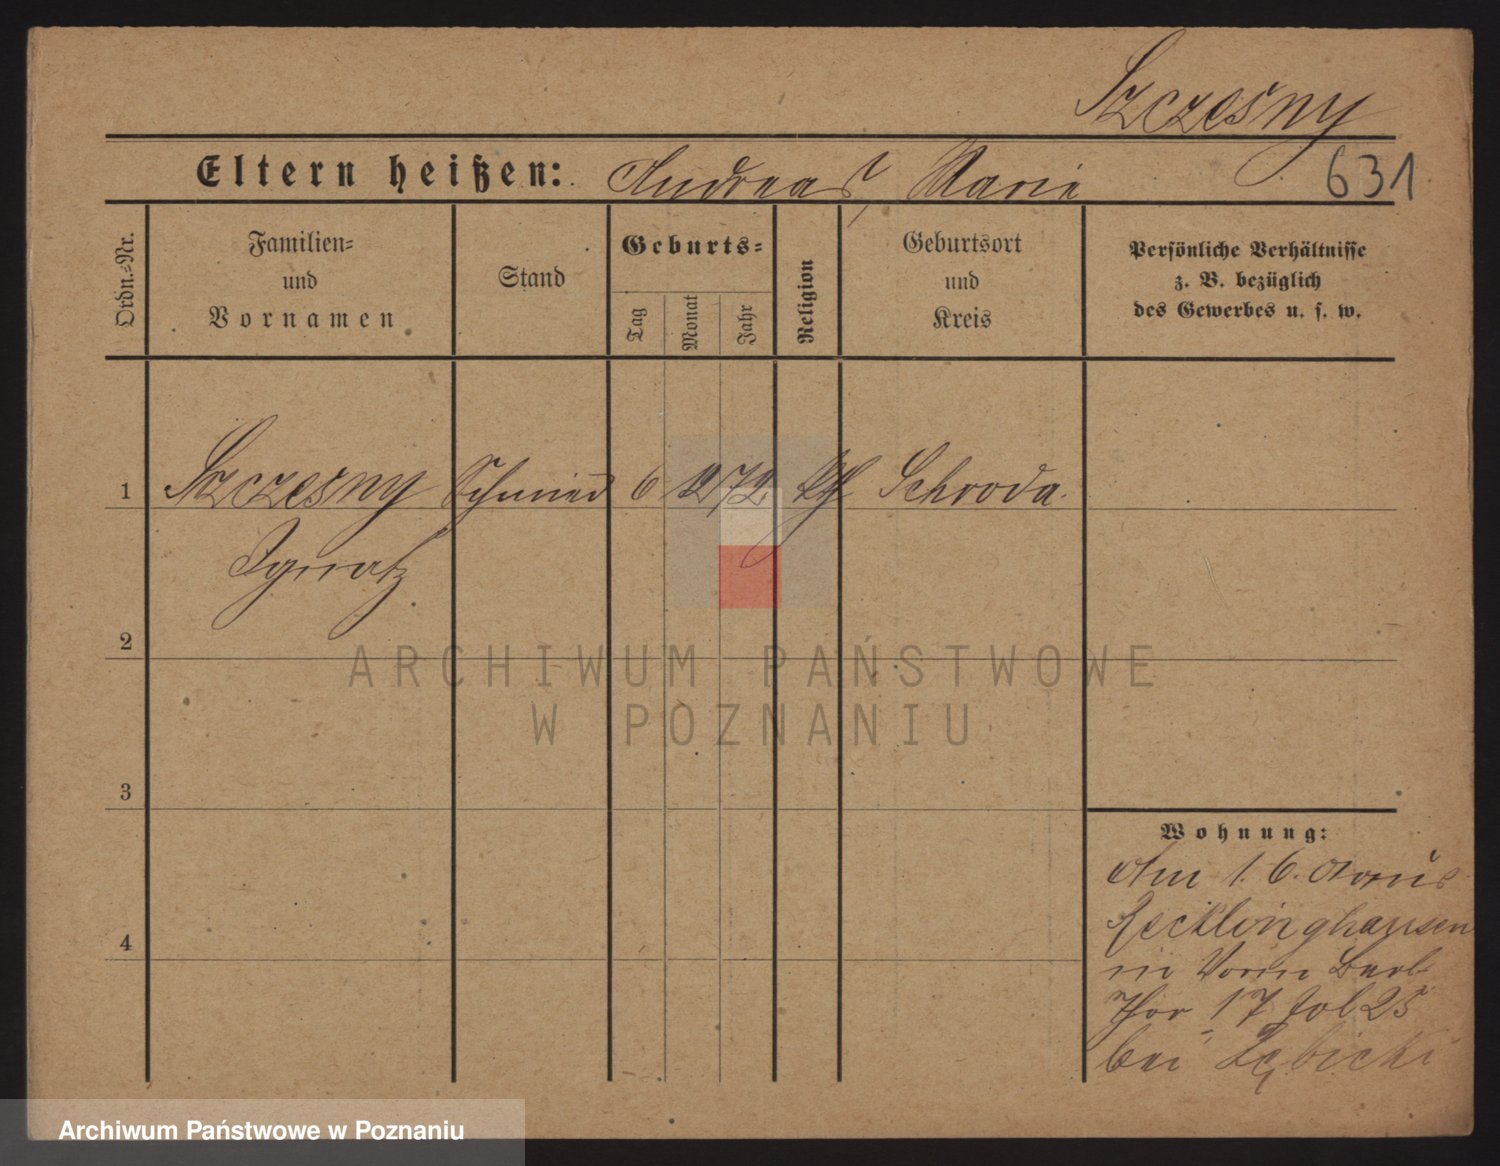 Szczesny
Eltern heißen: Andreas, Marie
631
Ordn.=Nr.
Familien=
und
Vornamen
Stand
Geburts=
Tag
Monat
Jahr
Religion
Geburtsort
und
Kreis
Persönliche Verhältnisse
z. B. bezüglich
des Gewerbes u. s. w.
1
Szczesny Schmied 6 12 72 kth Schroda.
Ignatz
2
ARCHIWUM PAŃSTWOWE
W POZNANIU
3
Wohnung:
Am 1. 6. aus
Recklinghausen
4
in Berl.
Thor 17 Jol 25
bei Zębicki
Archiwum Państwowe w Poznaniu